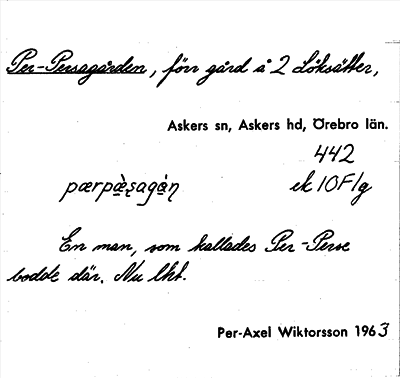 Per-Persagården, förr gård å 2 Löksätter,
Askers sn, Askers hd, Örebro län.
442
pærpæ̀ṣagàṇ ek 10F/g
En man, som kallades Per-Perse
bodde där. Nu lht.
Per-Axel Wiktorsson 1963